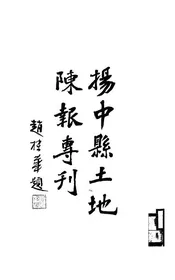 揚中縣土地
陳報專刊
趙桂華題